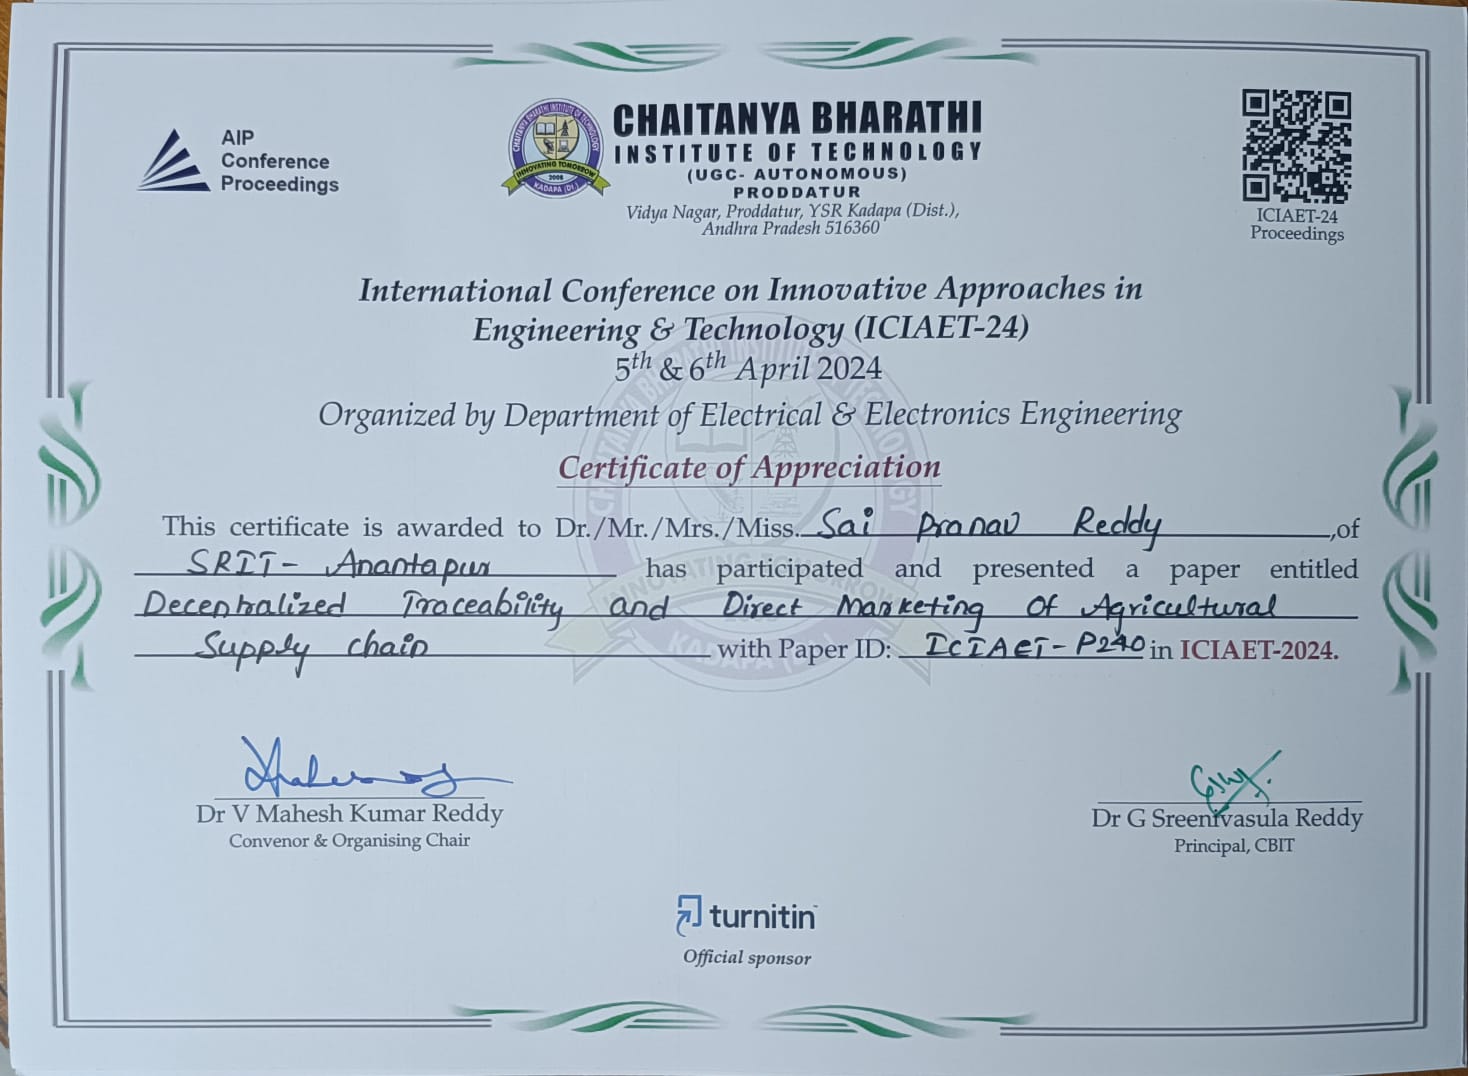 AIP
Conference
Proceedings
CHAITANYA BHARATHI INSTITUTE OF TECHNOLOGY
INNOVATING TOMORROW
2008
KADAPA (Dt.)
CHAITANYA BHARATHI
INSTITUTE OF TECHNOLOGY
(UGC- AUTONOMOUS)
PRODDATUR
Vidya Nagar, Proddatur, YSR Kadapa (Dist.),
Andhra Pradesh 516360
ICIAET-24
Proceedings
International Conference on Innovative Approaches in
Engineering & Technology (ICIAET-24)
5th & 6th April 2024
Organized by Department of Electrical & Electronics Engineering
Certificate of Appreciation
This certificate is awarded to Dr./Mr./Mrs./Miss. Sai Pranav Reddy ,of
SRIT- Anantapur has participated and presented a paper entitled
Decentralized Traceability and Direct Marketing Of Agricultural
Supply chain with Paper ID: ICIAET-P240 in ICIAET-2024.
Dr V Mahesh Kumar Reddy
Convenor & Organising Chair
Dr G Sreenivasula Reddy
Principal, CBIT
turnitin
Official sponsor